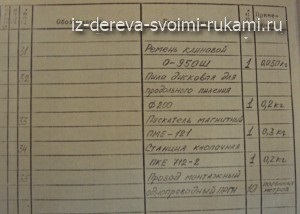 iz-dereva-svoimi-rukami.ru
Ремень клиновой
О-950Ш 1 0,050кг
Пила дисковая для
продольного пиления
Ф 200 1 0,2кг
Пускатель магнитной
ПМЕ-121 1 0,3кг
Станция кнопочная
ПКЕ 712-2 1 0,2кг
Провод монтажный
однопроводный 10 погонных
метров